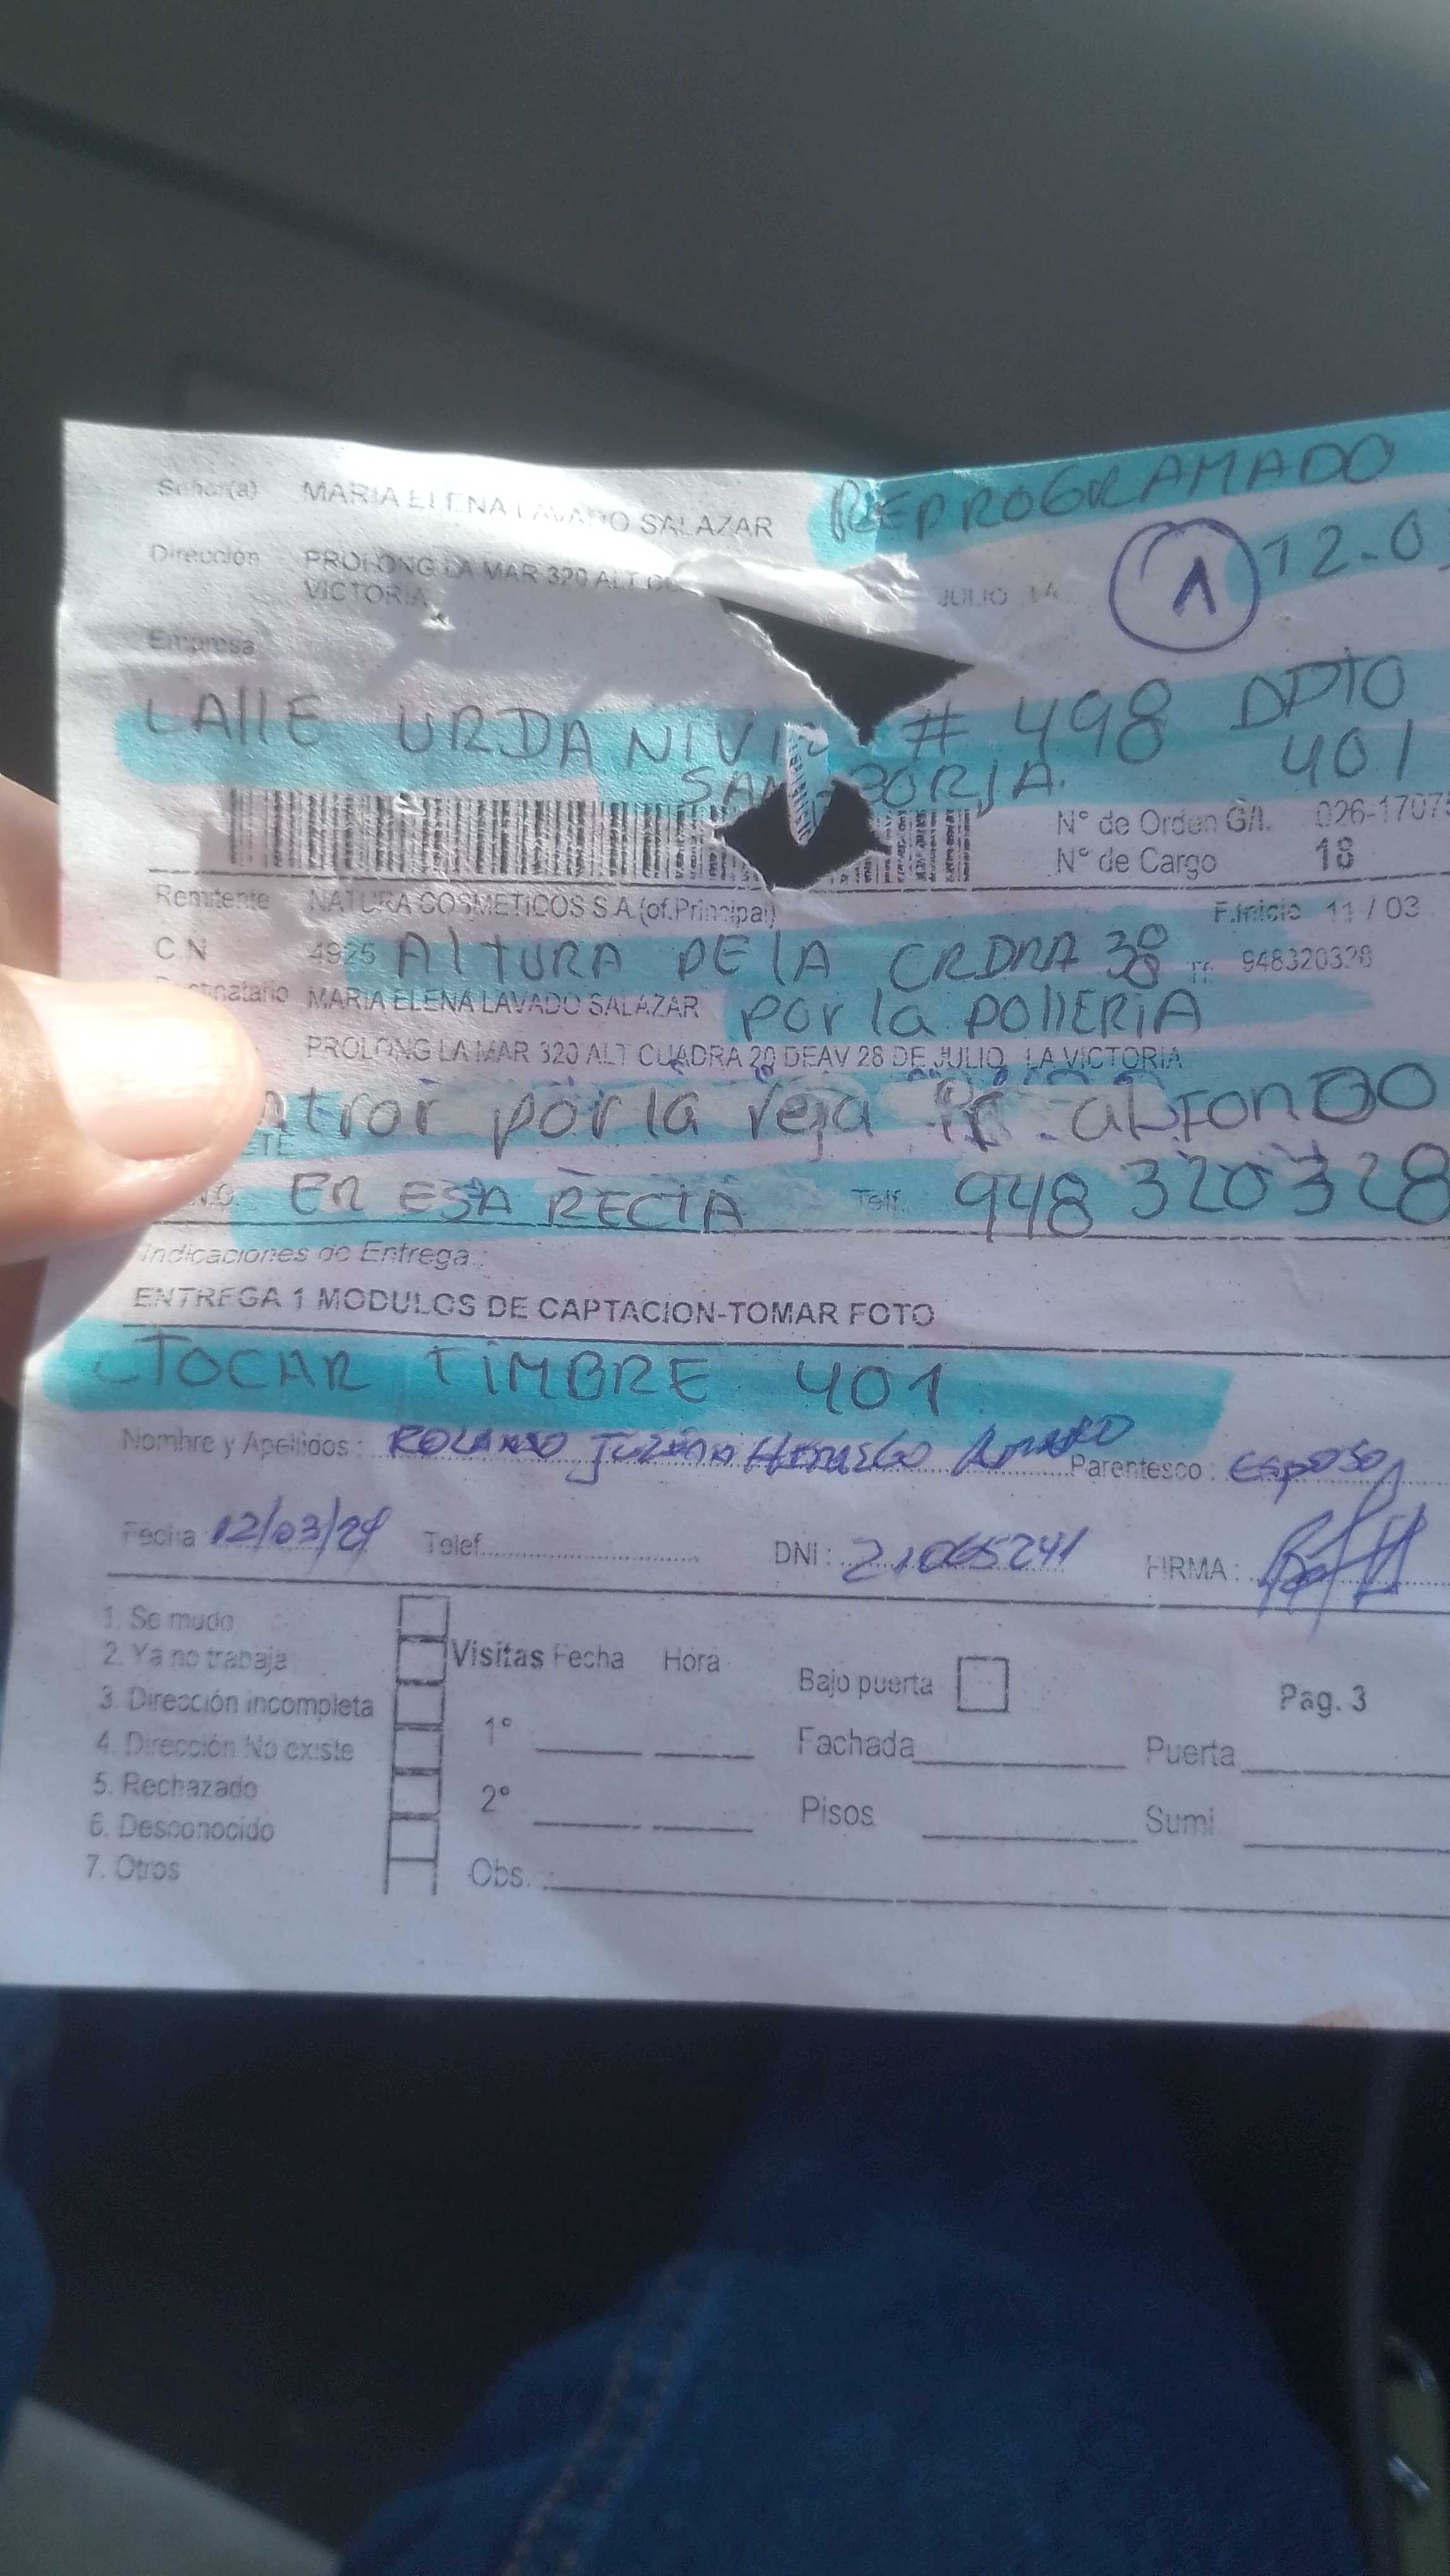 REPROGRAMADO
Señor(a) MARIA ELENA LAVADO SALAZAR
12-0
1
Dirección PROLONG LA MAR 320 ALT JULIO LA
VICTORIA
Empresa
CAllE URDANIVI # 498 DPTO
401
SAN BORJA
Nº de Orden G/I. 026-1707
Nº de Cargo 18
Remitente NATURA COSMETICOS S A (of.Principal) F.Inicio 11 / 03
C N 4925 AlTURA DE lA CRDRA 38 948320328
MARIA ELENA LAVADO SALAZAR por la pollERiA
PROLONG LA MAR 320 ALT CUADRA 20 DEAV 28 DE JULIO LA VICTORIA
ntrar por la reja al FONDO
EN ESA RECTA Telf. 948 320328
Indicaciones de Entrega :
ENTREGA 1 MODULOS DE CAPTACION-TOMAR FOTO
TOCAR TIMBRE 401
Nombre y Apellidos : ROLANDO Parentesco : Esposo
Fecha 12/03/24 Telef. DNI : 21065241 FIRMA :
1. Se mudo
2. Ya no trabaja
3. Dirección incompleta
4. Dirección No existe
5. Rechazado
6. Desconocido
7. Otros
Visitas Fecha Hora
1º
2º
Obs.
Bajo puerta
Fachada
Pisos
Pag. 3
Puerta
Sumi